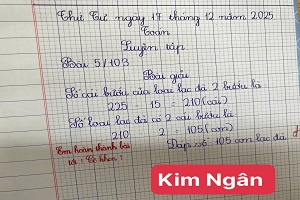 Thứ Tư ngày 17 tháng 12 năm 2025
Toán
Luyện tập
Bài 5/103
Bài giải
Số cái bướu của loại lạc đà 2 bướu là
225 15 = 210 (cái)
Số loại lạc đà có 2 cái bướu là
210 2 = 105 (con)
Đáp số 105 con lạc đà
Em hoàn thành bài
Cô khen
Kim Ngân